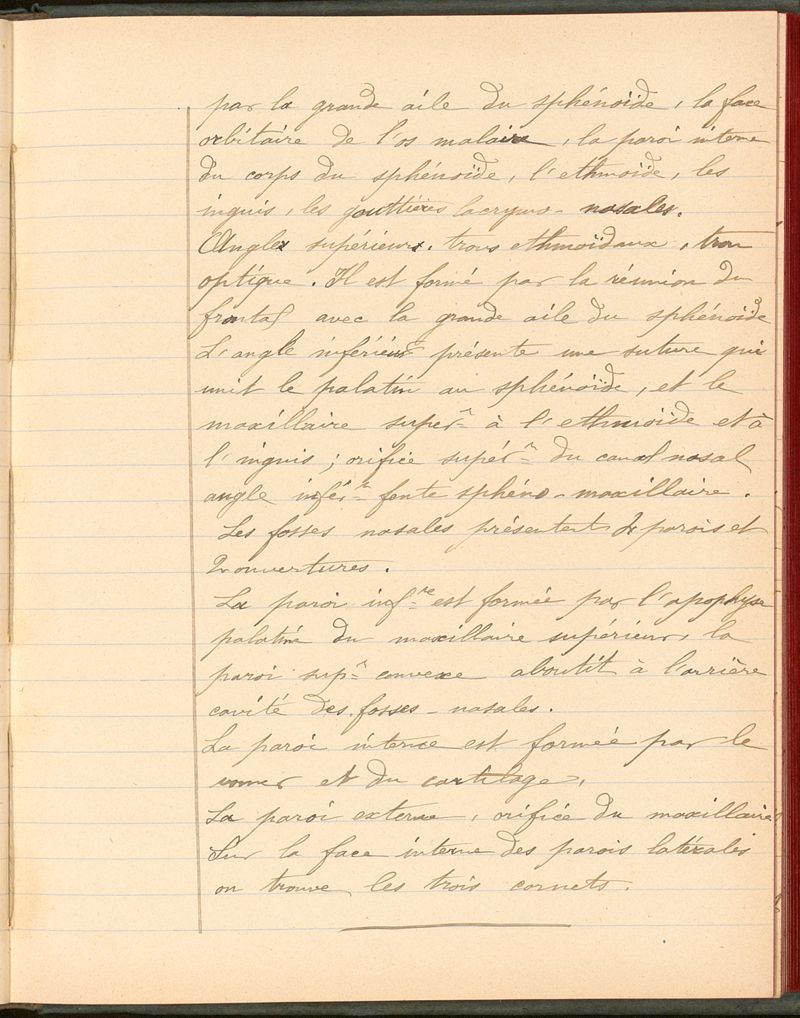 par la grande aile du sphénoïde, la face
orbitaire de l'os malaire, la paroi interne
du corps du sphénoïde, l'ethmoïde, les
inguis, les gouttières lacrymo-nasales.
Angles supérieurs. trous ethmoïdaux, trou
optique. Il est formé par la réunion du
frontal avec la grande aile du sphénoïde
L'angle inférieur présente une suture qui
unit le palatin au sphénoïde, et le
maxillaire supér à l'ethmoïde et à
l'inguis ; orifice supér du canal nasal
angle infér fente sphéno-maxillaire.
Les fosses nasales présentent parois et
2 ouvertures.
La paroi infre est formée par l'apophyse
palatine du maxillaire supérieur, la
paroi supr convexe aboutit à l'arrière
cavité des fosses-nasales.
La paroi interne est formée par le
vomer et du cartilage.
La paroi externe, orifice du maxillaire
Sur la face interne des parois latérales
on trouve les trois cornets.